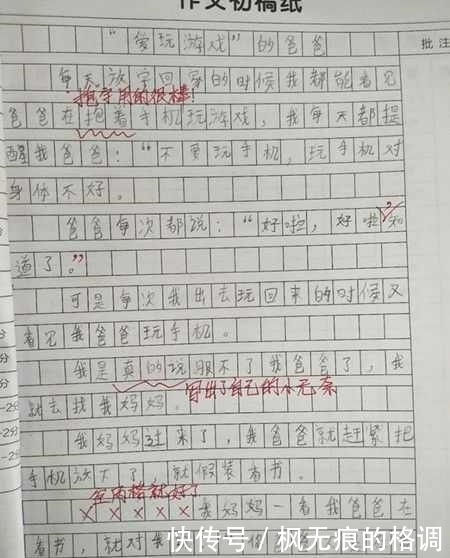 作文初稿纸
"爱玩游戏"的爸爸
批注
每天放字回家的时候我都能看见
抱字用的很棒!
爸爸在抱着手机玩游戏，我每天都提
醒我爸爸："不要玩手机，玩手机对
身体不好。
爸爸每次都说："好啦，好啦知
道了。"
可是每次我出去玩回来的时候又
看见我爸爸玩手机。
我是真的说服不了我爸爸了，我
写出了自己的小无奈
就去找我妈妈。
我妈妈过来了，我爸爸就赶紧把
手机放下了，就假装看书。
空两格就好了
我妈妈一看我爸爸在
看书，就对我
快传号/枫无痕的格调